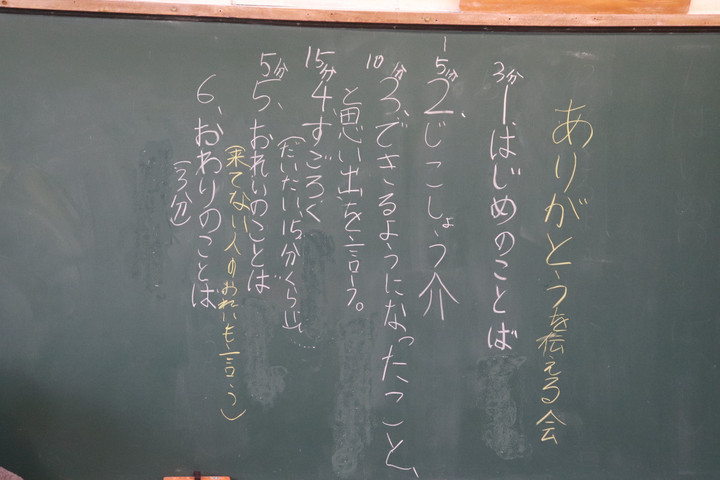 ありがとうを伝える会
3分
1、はじめのことば
15分
2、じこしょう介
10分
3、できるようになったこと、
と思い出を言う。
15分
4、すごろく
(だいたい15分くらい)
5分
5、おれいのことば
(来てない人のおれいも言う)
6、おわりのことば
(3分)